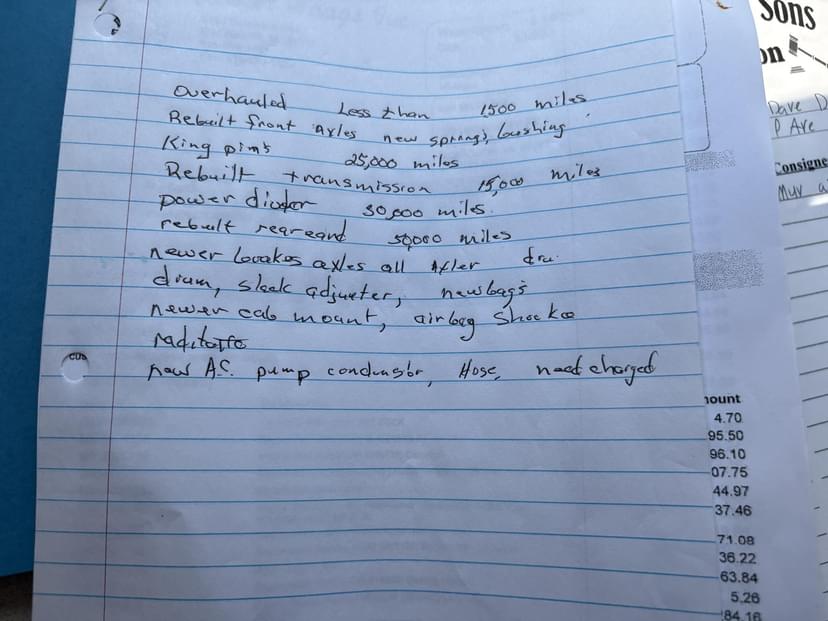 overhauled Less than 1500 miles
Rebuilt front axles new springs, bushing
King pins 25,000 miles
Rebuilt transmission 15,000 miles
power divider 30,000 miles.
rebuilt rearend 50,000 miles
newer brakes axles all axles dru
drum, slack adjuster, new bags
newer cab mount, airbag shocks
new A.C. pump condensor, Hose, need charged
Sons
on
Dave D
P Ave
Consigne
Muv a
mount
4.70
95.50
96.10
07.75
44.97
37.46
71.08
36.22
63.84
5.26
84.16